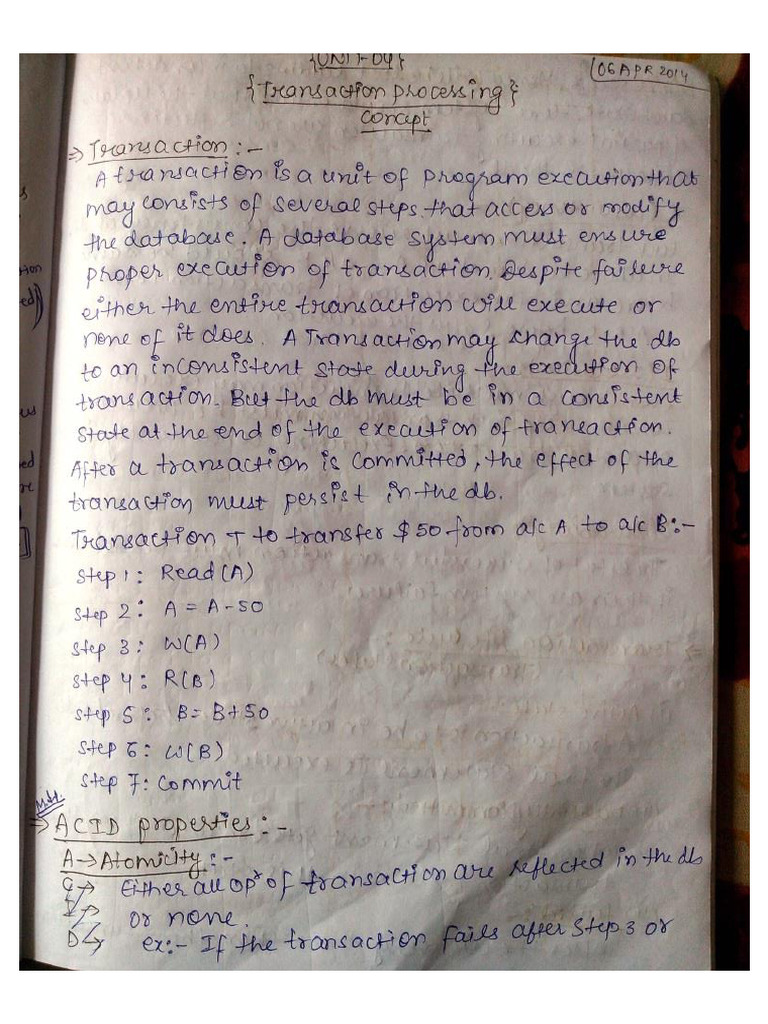 {UNIT-04}
06 APR 2014
{Transaction processing}
Concept
⇒ Transaction :-
A transaction is a unit of program execution that
may consists of several steps that access or modify
the database. A database system must ensure
proper execution of transaction Despite failure
either the entire transaction will execute or
none of it does. A Transaction may change the db
to an inconsistent state during the execution of
transaction. But the db must be in a consistent
state at the end of the execution of transaction.
After a transaction is committed, the effect of the
transaction must persist in the db.
Transaction T to transfer $50 from a/c A to a/c B:-
Step 1: Read(A)
Step 2: A = A-50
Step 3: W(A)
Step 4: R(B)
Step 5: B= B+50
Step 6: W(B)
Step 7: Commit
⇒ ACID properties:-
A → Atomicity:-
C → Either all opr of transaction are reflected in the db
I → or none.
D → ex:- If the transaction fails after Step 3 or